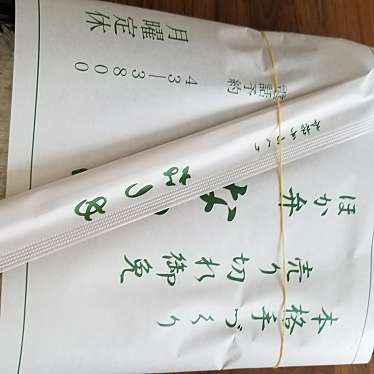 本格手づくり
売り切れ御免
ほか弁
電話予約
43―3800
月曜定休